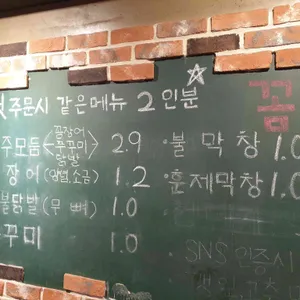 첫주문시 같은메뉴 2인분 ☆
꼼
주모듬 <꼼장어 쭈꾸미 닭발> 2.9
장어 (양념,소금) 1.2
불닭발 (무뼈) 1.0
꾸미 1.0
·불막창 1.0
·훈제막창 1.0
·SNS 인증시